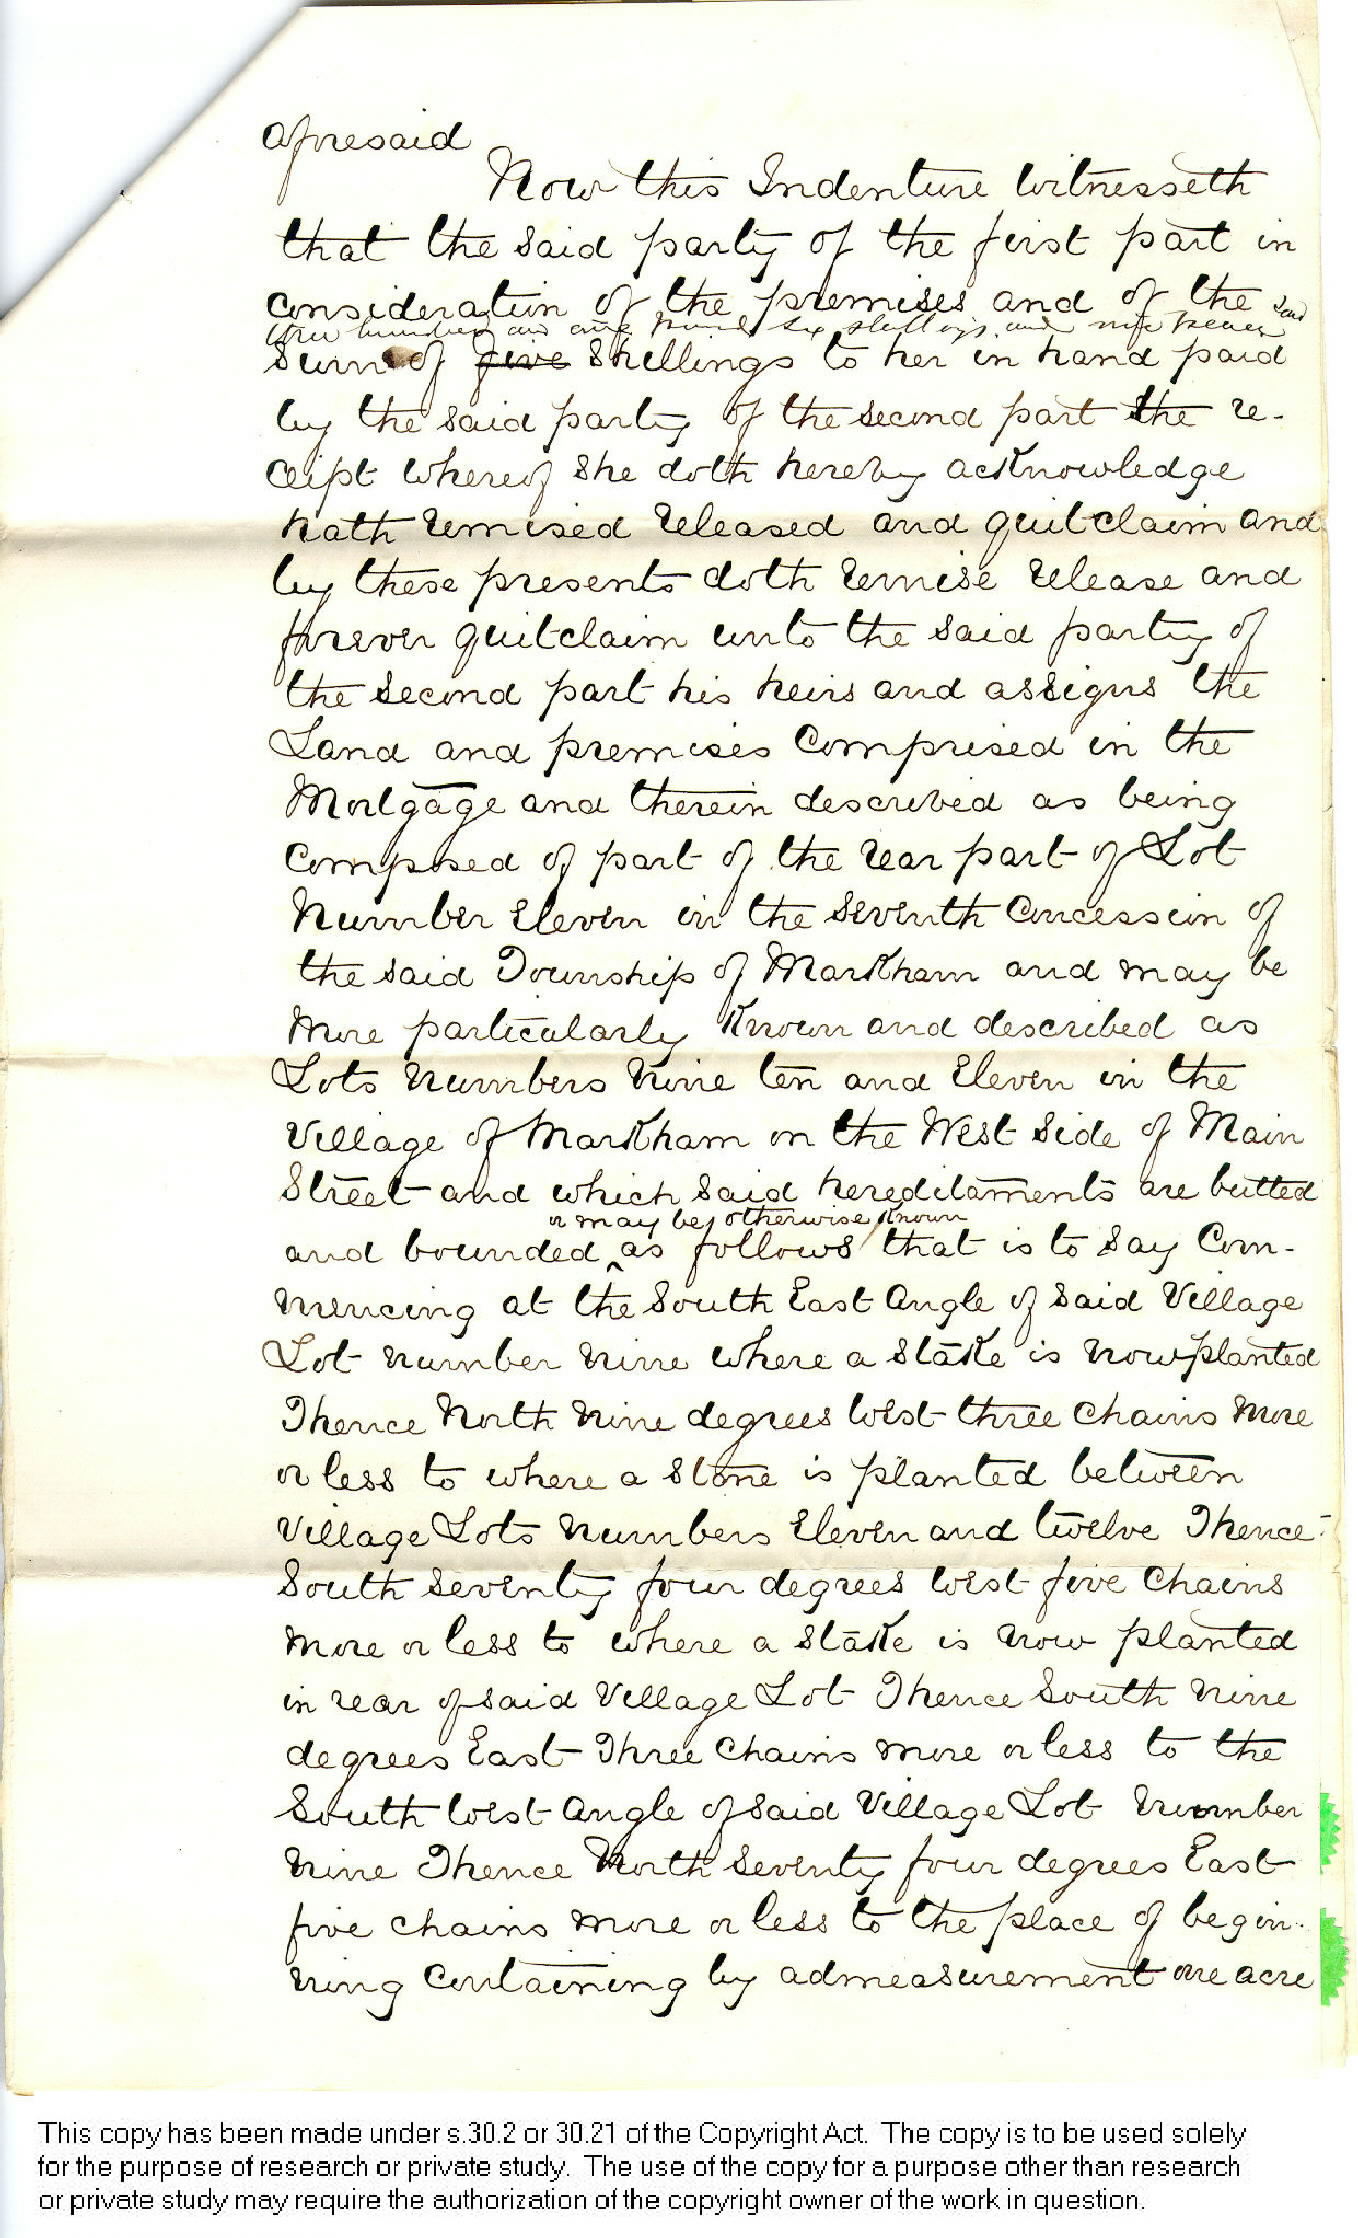 aforesaid
Now this Indenture Witnesseth
that the said party of the first part in
consideration of the premises and of the said
three hundred and one pounds six shillings and nine pence
Sum of five Shillings to her in hand paid
by the said party of the second part the re-
ceipt whereof She doth hereby acknowledge
hath remised released and quitclaim and
by these presents doth remise release and
forever quitclaim unto the said party of
the second part his heirs and assigns the
Land and premises Comprised in the
Mortgage and therein described as being
Composed of part of the rear part of Lot
Number Eleven in the Seventh Concession of
the said Township of Markham and may be
More particularly Known and described as
Lots Numbers Nine ten and Eleven in the
Village of Markham on the West Side of Main
Street and which said hereditaments are butted
or may be otherwise Known
and bounded ‸ as follows that is to Say Com-
mencing at the South East Angle of Said Village
Lot number nine where a Stake is now planted
Thence North Nine degrees West three Chains More
or less to where a Stone is planted between
Village Lots Numbers Eleven and twelve Thence
South Seventy four degrees West five Chains
More or less to where a Stake is now planted
in rear of said Village Lot Thence South nine
degrees East Three Chains more or less to the
South West Angle of Said Village Lot Number
Nine Thence North Seventy four degrees East
five chains more or less to the place of begin-
ning Containing by admeasurement one acre
This copy has been made under s.30.2 or 30.21 of the Copyright Act. The copy is to be used solely
for the purpose of research or private study. The use of the copy for a purpose other than research
or private study may require the authorization of the copyright owner of the work in question.